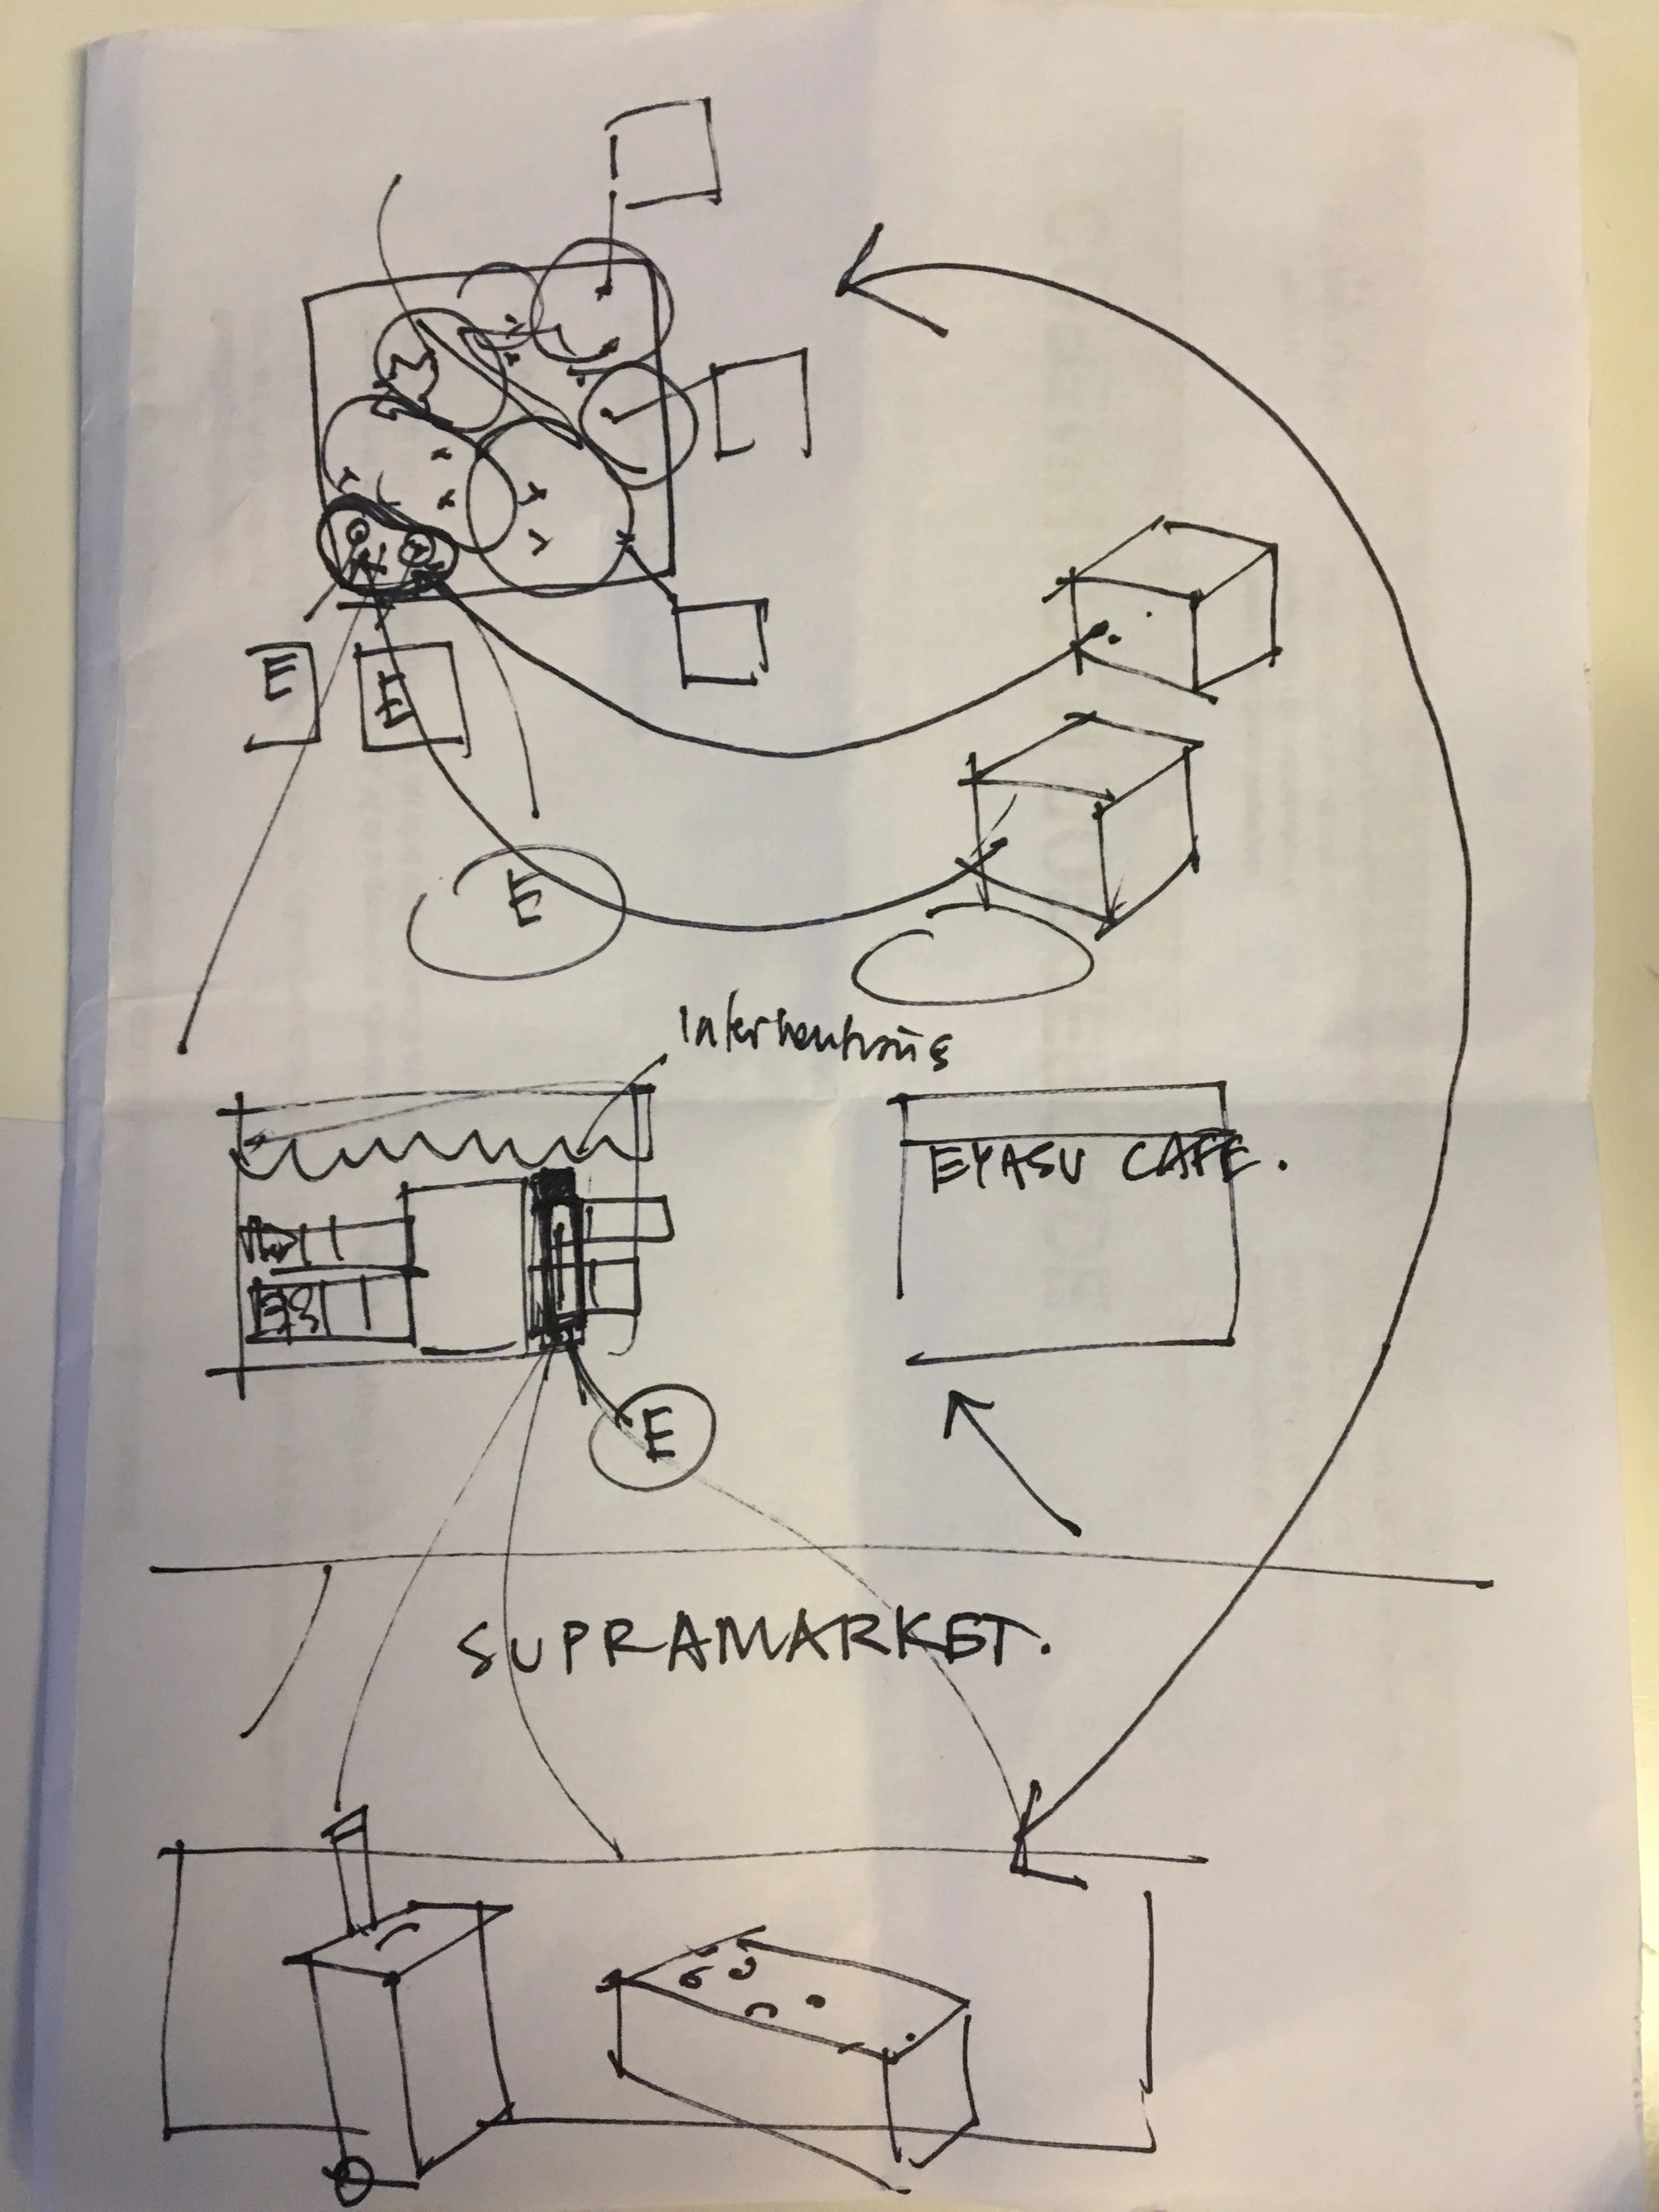 E
E
E
Interventions
EYASU CAFE.
E
SUPRAMARKET.